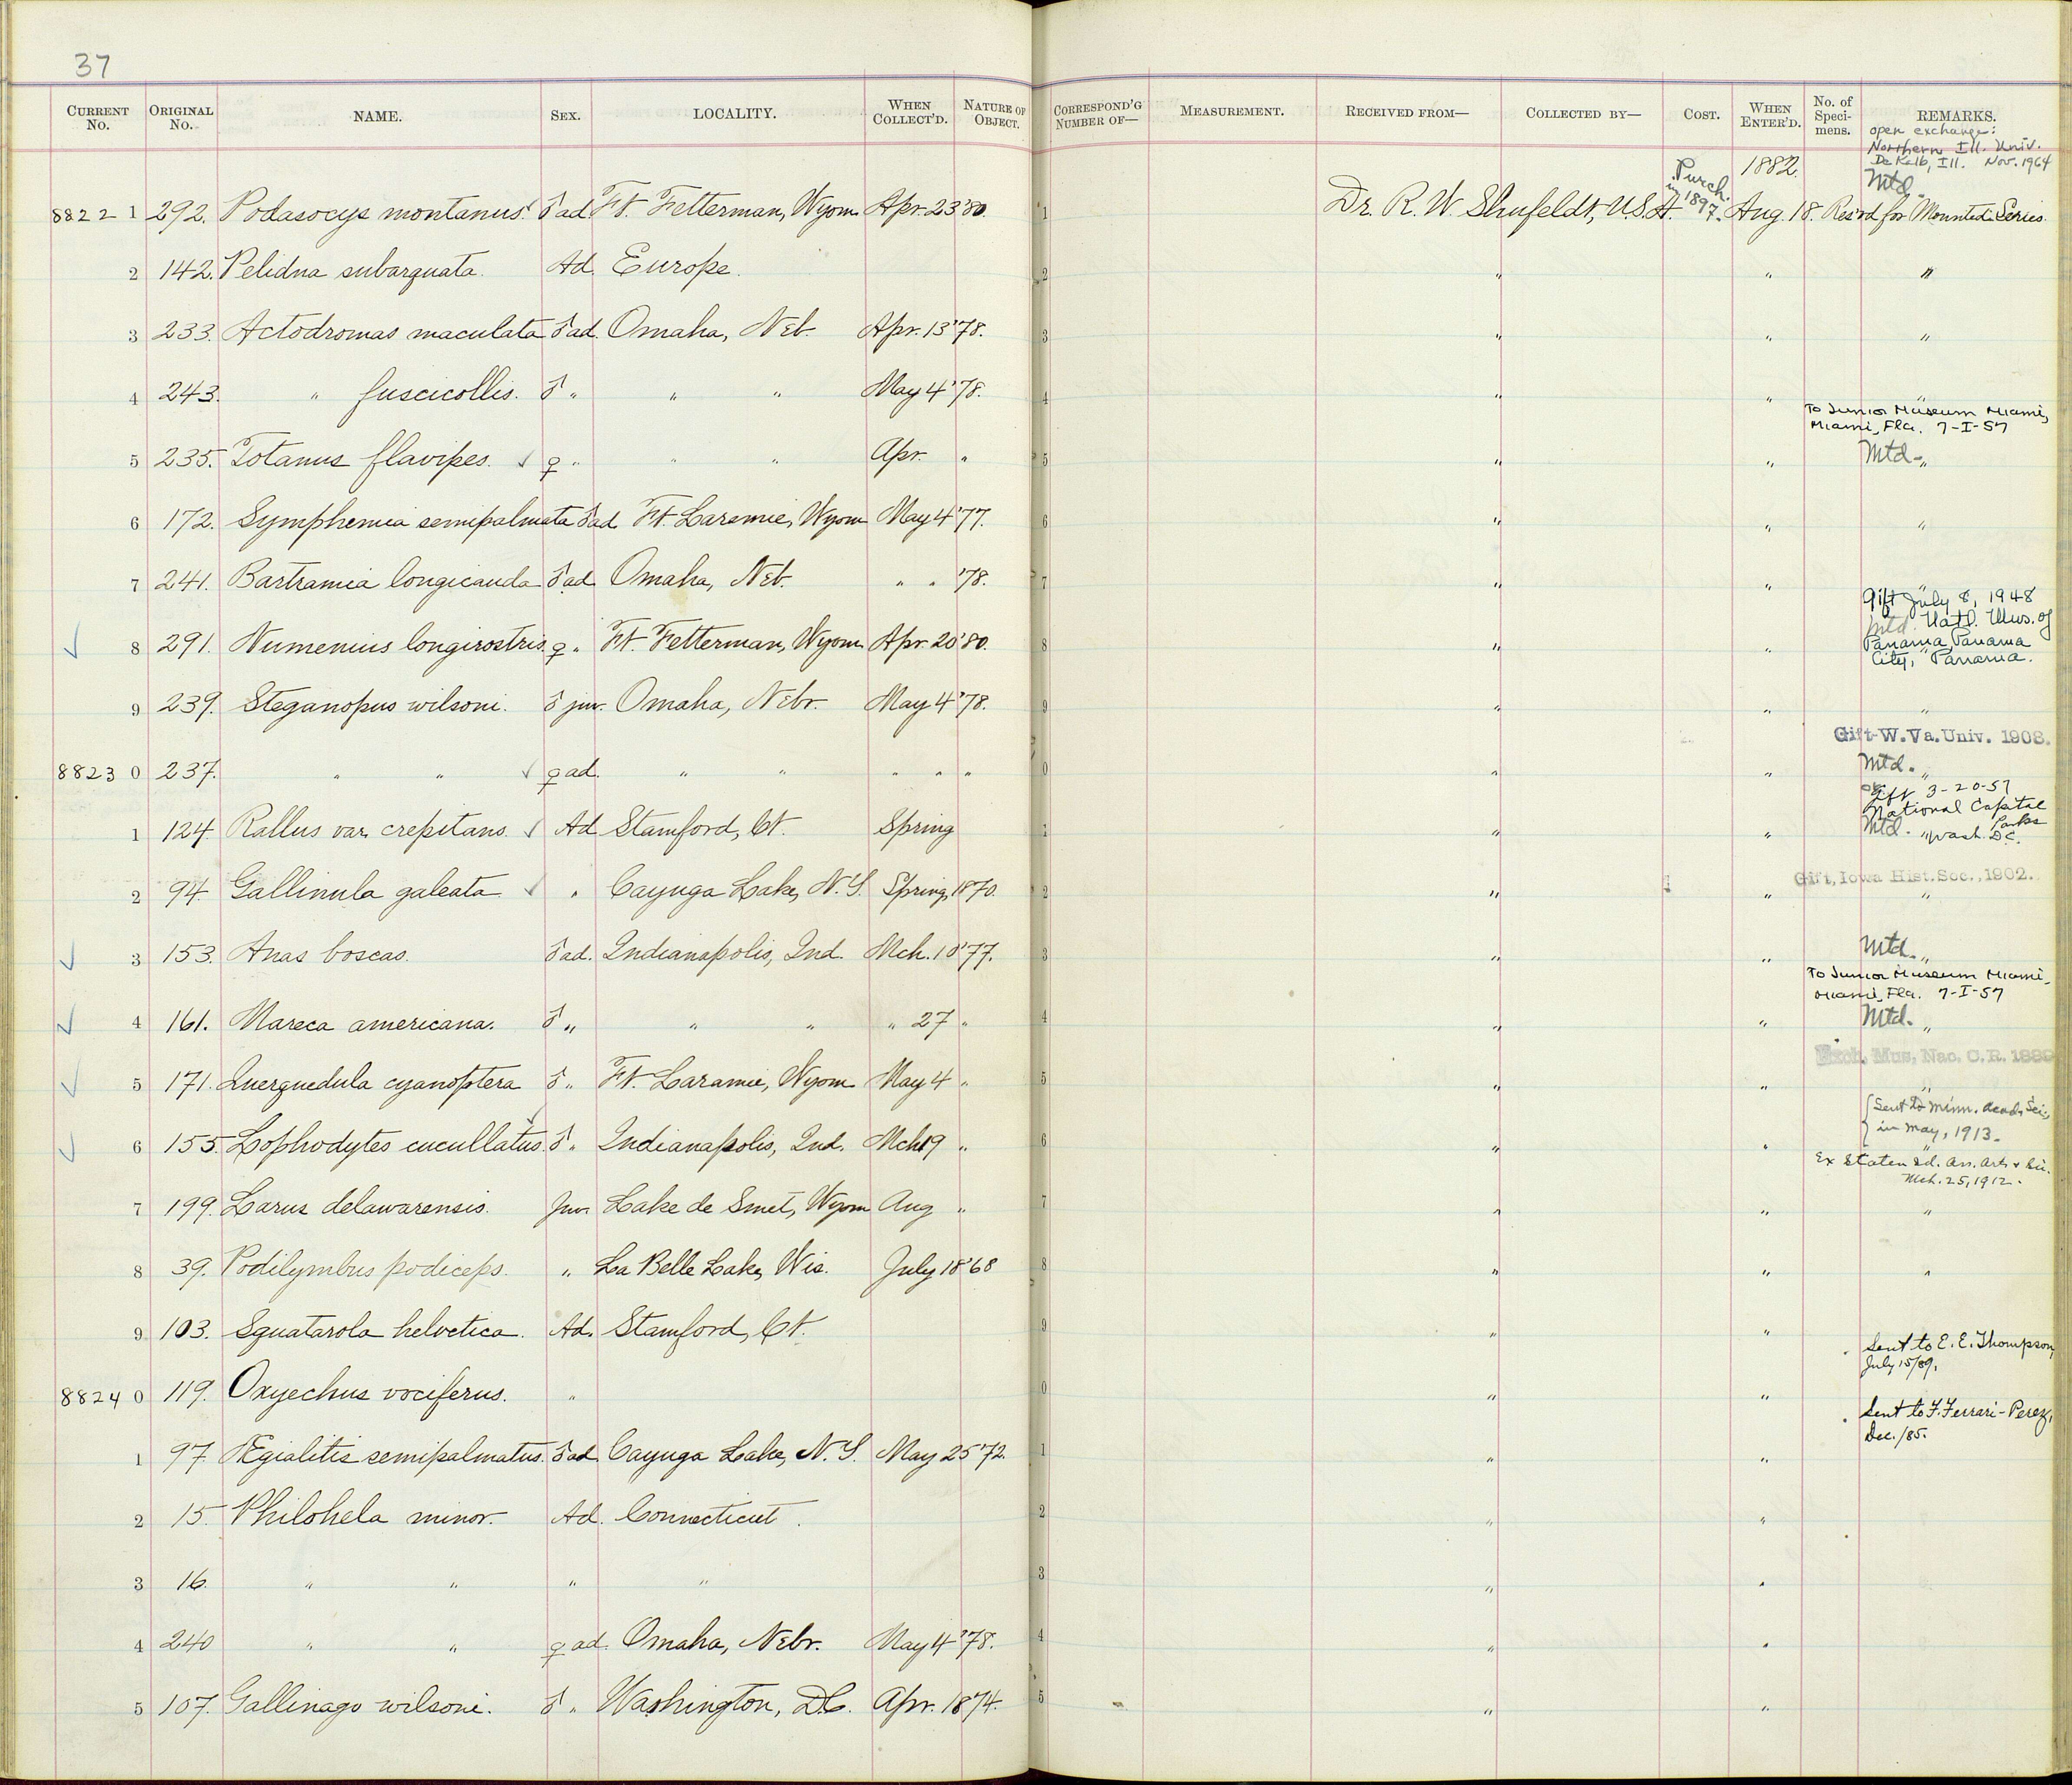 37
CURRENT No. ORIGINAL No. NAME. SEX. LOCALITY. WHEN COLLECT'D. NATURE OF OBJECT. CORRESPOND'G NUMBER OF— MEASUREMENT. RECEIVED FROM— COLLECTED BY— COST. WHEN ENTER'D. No. of Speci-mens. REMARKS.
open exchange:
Northern Ill. Univ.
De Kalb, Ill. Nov. 1964
Purch. in 1897. 1882. Mtd.
8822 1 292. Podasocys montanus. ♂ ad Ft. Fetterman, Wyom. Apr. 23 '80. 1 Dr. R. W. Shufeldt, U.S.A. Aug. 18. Res'vd for Mounted Series.
2 142. Pelidna subarquata. Ad. Europe. 2 " " "
3 233. Actodromas maculata ♂ ad. Omaha, Neb. Apr. 13 '78. 3 " " "
4 243. " fuscicollis. ♂ " " " May 4 '78. 4 " " "
To Junior Museum Miami,
Miami, Fla. 7-I-57
5 235. Totanus flavipes. ✓ ♀ " " " Apr. " 5 " " Mtd. "
6 172. Symphemia semipalmata ♂ ad Ft. Laramie, Wyom May 4 '77. 6 " " "
7 241. Bartramia longicauda ♂ ad Omaha, Neb. " " '78. 7 " " "
Gift July 8, 1948
Mtd. Natl. Mus. of
✓ 8 291. Numenius longirostris. ♀ " Ft. Fetterman, Wyom. Apr. 20 '80. 8 " " Panama, Panama
City, Panama.
9 239. Steganopus wilsoni. ♂ juv. Omaha, Nebr. May 4 '78. 9 " " "
Gift-W. Va. Univ. 1908.
8823 0 237. " " ✓ ♀ ad. " " " " " 0 " " Mtd. "
Gift 3-20-57
National Capital
Parks
1 124. Rallus var. crepitans. ✓ Ad Stamford, Ct. Spring 1 " " Mtd. " Wash. D.C.
Gift, Iowa Hist. Soc., 1902.
2 94. Gallinula galeata ✓ " Cayuga Lake, N.Y. Spring, 1870. 2 " " "
✓ 3 153. Anas boscas. ♂ ad. Indianapolis, Ind. Mch. 10 '77. 3 " " Mtd. "
To Junior Museum Miami,
Miami, Fla. 7-I-57
✓ 4 161. Mareca americana. ♂ " " " " 27 " 4 " " Mtd. "
Exch. Mus. Nac. C.R. 1889
✓ 5 171. Querquedula cyanoptera ♂ " Ft. Laramie, Wyom May 4 " 5 " " "
Sent to Minn. Acad. Sci.,
in May, 1913.
✓ 6 155. Lophodytes cucullatus. ♂ " Indianapolis, Ind. Mch 19 " 6 " " "
Ex Staten Id. Ass. Arts & Sci.
Mch. 25, 1912.
7 199. Larus delawarensis. Juv. Lake de Smet, Wyom Aug " 7 " " "
8 39. Podilymbus podiceps. " La Belle Lake, Wis. July 18 '68 8 " " "
9 103. Squatarola helvetica. Ad. Stamford, Ct. 9 " "
Sent to E. E. Thompson,
July 15/89.
8824 0 119. Oxyechus vociferus. " 0 " "
Sent to F. Ferrari-Perez,
Dec./85.
1 97. Ægialitis semipalmatus. ♂ ad. Cayuga Lake, N.Y. May 25 '72. 1 " "
2 15. Philohela minor. Ad. Connecticut. 2 " "
3 16. " " " " 3 " "
4 240 " " ♀ ad. Omaha, Nebr. May 4 '78. 4 " "
5 107. Gallinago wilsoni. ♂ " Washington, D.C. Apr. 1874. 5 " "